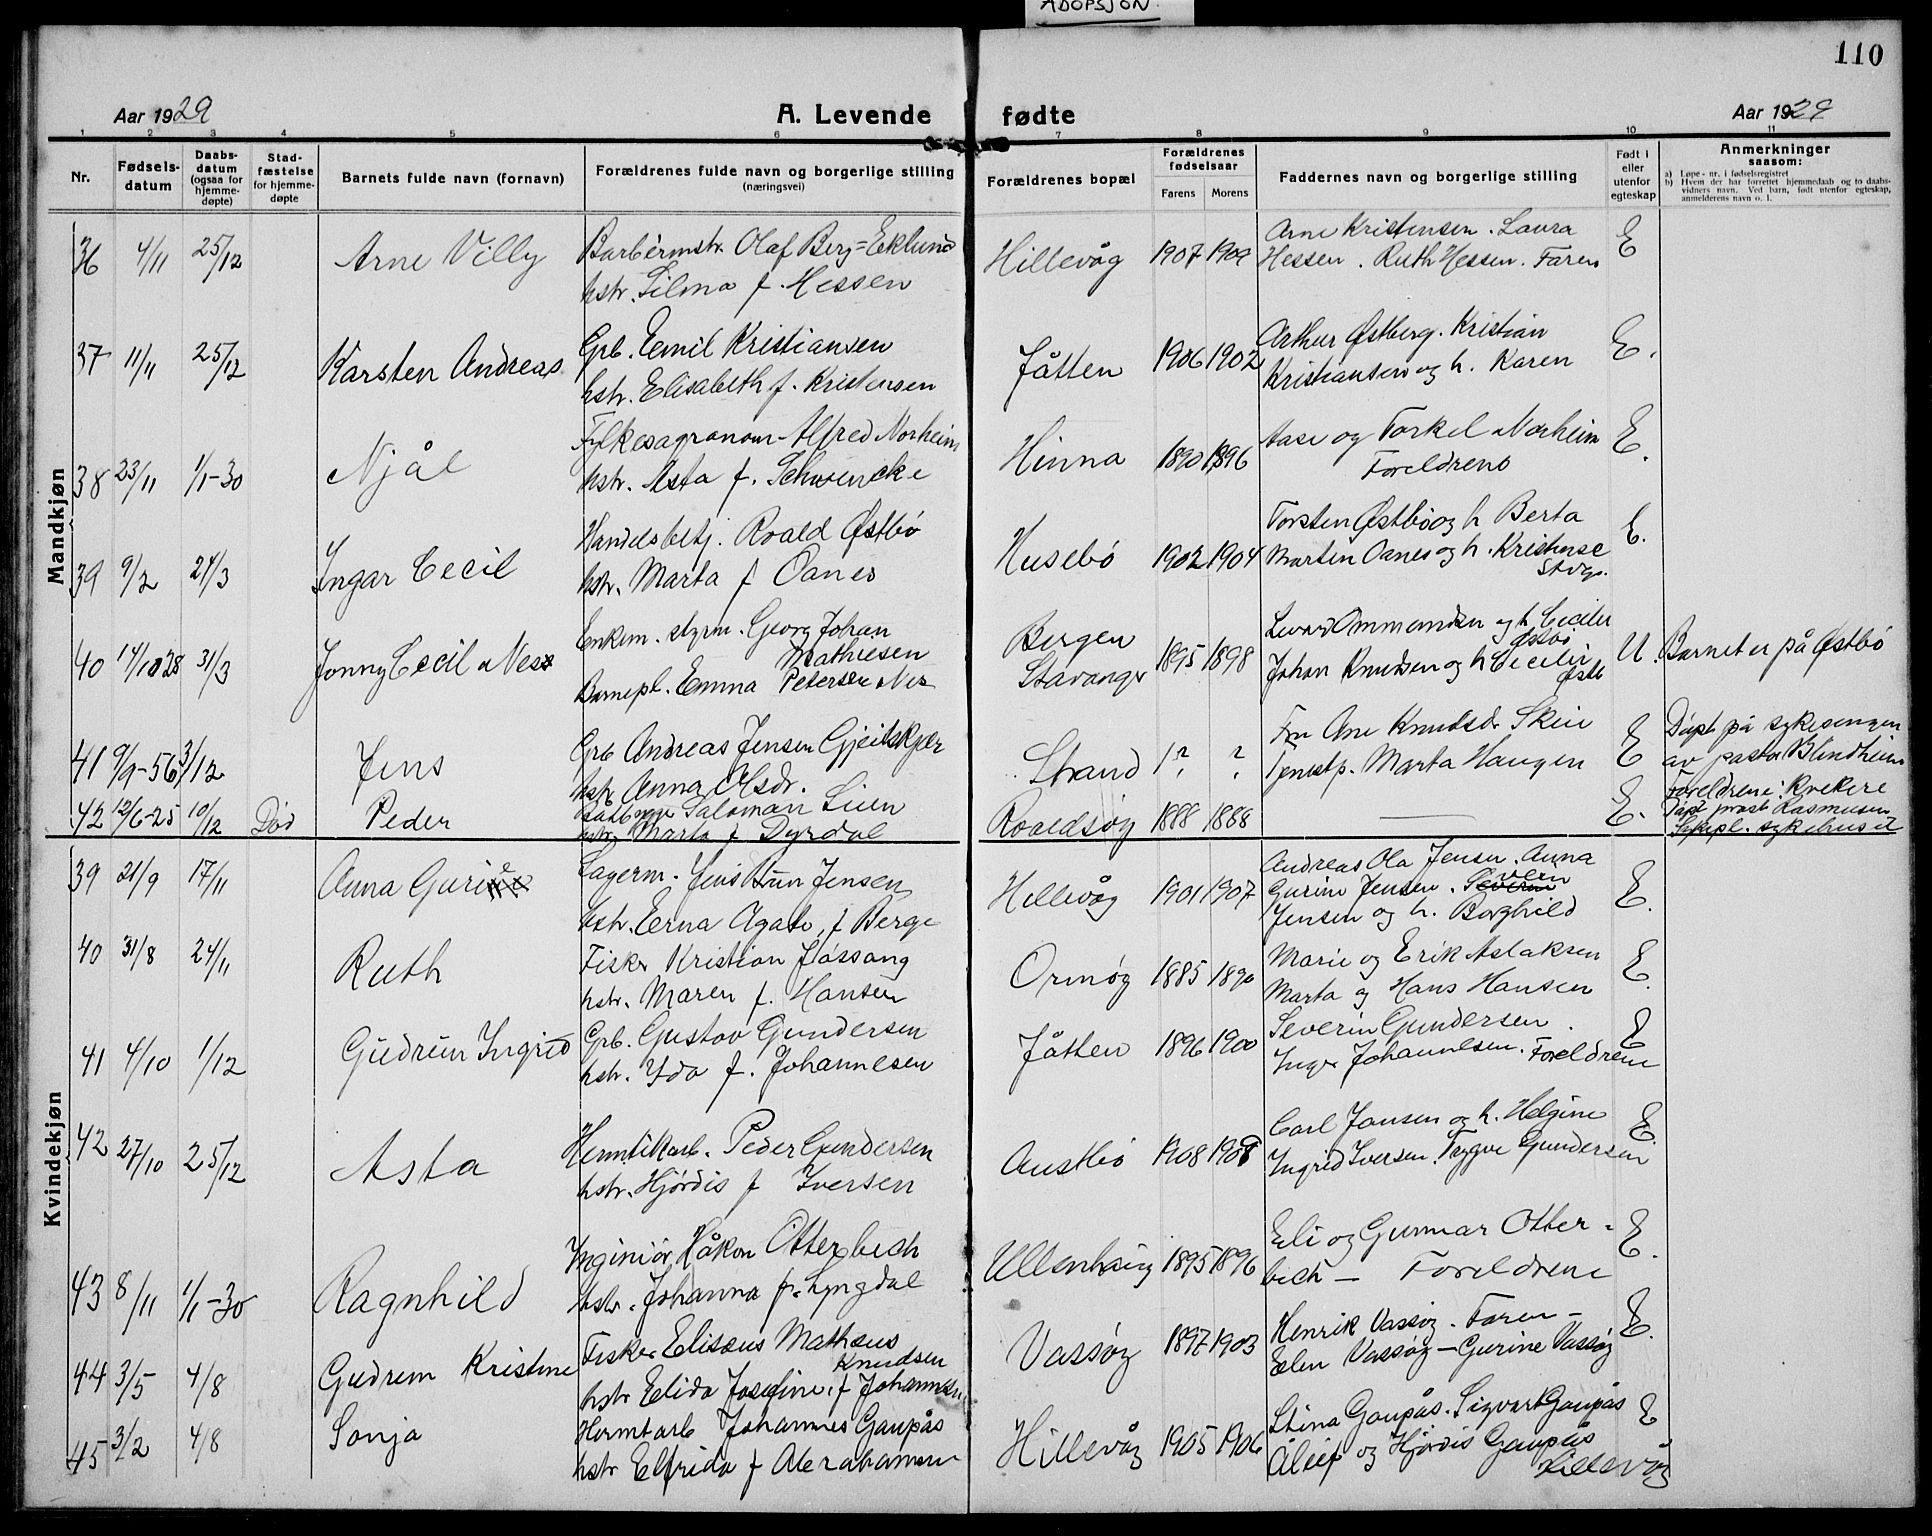 ADOPSJON.
110
Aar 1929
A. Levende fødte
Aar 1929
1 2 3 4 5 6 7 8 9 10 11
Nr.
Fødsels-
datum
Daabs-
datum
(ogsaa for
hjemme-
døpte)
Stad-
fæstelse
for hjemme-
døpte
Barnets fulde navn (fornavn)
Forældrenes fulde navn og borgerlige stilling
(næringsvei)
Forældrenes bopæl
Forældrenes
fødselsaar
Farens Morens
Faddernes navn og borgerlige stilling
Født i
eller
utenfor
egteskap
Anmerkninger
saasom:
a) Løpe-nr. i fødselsregistret
b) Hvem der har forrettet hjemmedaab og to daabs-
vidners navn. Ved barn, født utenfor egteskap,
anmelderens navn o. l.
Mandkjøn
36 4/11 25/12 Arne Villy
Barbermstr. Olaf Berg=Eklund
hstr. Silma f. Hessen
Hillevåg 1907 1909
Arne Kristensen. Laura
Hessen. Ruth Hessen. Faren
E
37 11/11 25/12 Karsten Andreas
Grb. Emil Kristiansen
hstr. Elisabeth f. Kristensen
Jåtten 1906 1902
Arthur Østberg. Kristian
Kristiansen og h. Karen
E.
38 23/11 1/1-30 Njål
Fylkesagronom Alfred Norheim
hstr. Asta f. Schwencke
Hinna 1890 1896
Aase og Torkel Norheim
Foreldrene
E.
39 9/2 24/3 Ingar Cecil
Handelsbetj. Roald Østbö
hstr. Marta f Oanes
Husebö 1902 1904
Torsten Østbö og h Berta
Marten Oanes og h. Kristense
Stvgr.
E.
40 14/10 28 31/3 Jonny Cecil Ness
Enkem. styrm. Georg Johan
Mathiesen
Barnepl. Emma Petersen Nes
Bergen
Stavanger
1895 1898
Ommundsen og h. Cecilie
Østbö
Johan Knudsen og h Cecilie
Østb
U. Barnet er på Østbö
41 9/9-56 3/12 Jens
Grb Andreas Jensen Gjeitskjær
hstr. Anna Asdr.
Strand 1? ?
Fru Ane Knudsdr Skeie
Tjenestp. Marta Haugen
E
Döpt på sykesengen
av pastor Blindheim
Foreldrene: kvekere
42 12/6-25 10/12 Död Peder
Salomon Lien
hstr. Marta f Dyrdal
Roaldsöy 1888 1888
E.
prost Rasmusen
Sykepl. sykehuset
Kvindekjøn
39 21/9 17/11 Anna Gurine
Lagerm. Jens Bun Jensen
hstr. Erna Agate, f Berge
Hillevåg 1901 1907
Andreas Ola Jensen. Anna
Gurine Jensen. Severin
Jensen og h. Borghild
E.
40 31/8 24/11 Ruth
Fisker Kristian Jössang
hstr. Maren f. Hansen
Ormöy 1885 1890
Marie og Erik Aslaksen
Marta og Hans Hansen
E.
41 4/10 1/12 Gudrun Ingrid
Grb. Gustav Gundersen
hstr. Ida f. Johannesen
Jåtten 1896 1900
Severin Gundersen.
Inger Johannesen. Foreldrene
E
42 27/10 25/12 Asta
Hermtikarb. Peder Gundersen
hstr. Hjördis f Iversen
Austbö 1908 1908
Carl Jansen og h. Helgine
Ingrid Iversen. Trygve Gundersen
E.
43 8/11 1/1-30 Ragnhild
Ingeniör Håkon Otterbech
hstr. Johanna f. Lyngdal
Ullenhaug 1895 1896
Eli og Gunnar Otter-
bech — Foreldrene
E.
44 3/5 4/8 Gudrun Kristine
Fisker Elisæus Mathæus
Knudsen
hstr Elida Josefine, f Johannesen
Vassöy 1897 1903
Henrik Vassöy. Faren —
Elen Vassöy — Gurine Vassöy
E.
45 3/2 4/8 Sonja
Hermtarb Johannes Gaupås
hstr Elfrida f Abrahamsen
Hillevåg 1905 1906
Stina Gaupås. Sigvart Gaupås
og Hjördis Gaupås
Hillevåg
E